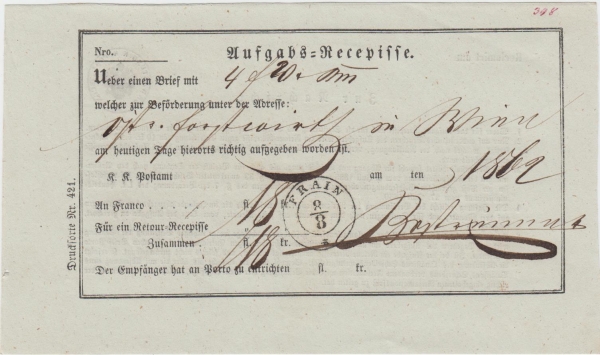 348
Nro.
Aufgabs=Recepisse.
Ueber einen Brief mit 4 f 20
welcher zur Beförderung unter der Adresse:
in Wien
am heutigen Tage hierorts richtig aufgegeben worden ist.
K. K. Postamt am ten 1862
FRAIN
8/8
An Franco fl. 18 kr.
Für ein Retour-Recepisse
Zusammen fl. 18 kr.
Der Empfänger hat an Porto zu entrichten fl. kr.
Drucksorte Nr. 421.